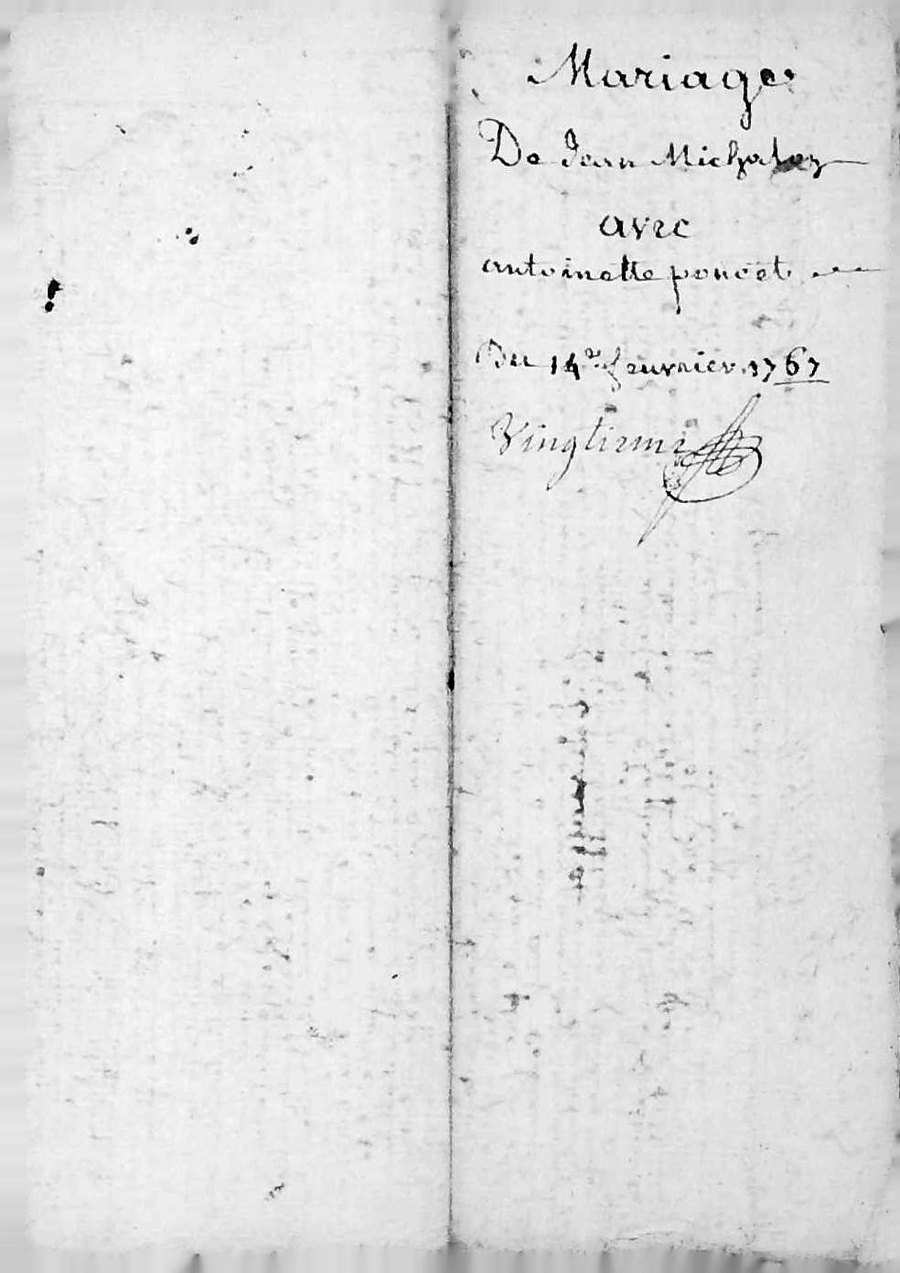 Mariage
De Jean Michalon
avec
antoinette poncet
Du 14e feuvrier 1767
Vingtieme